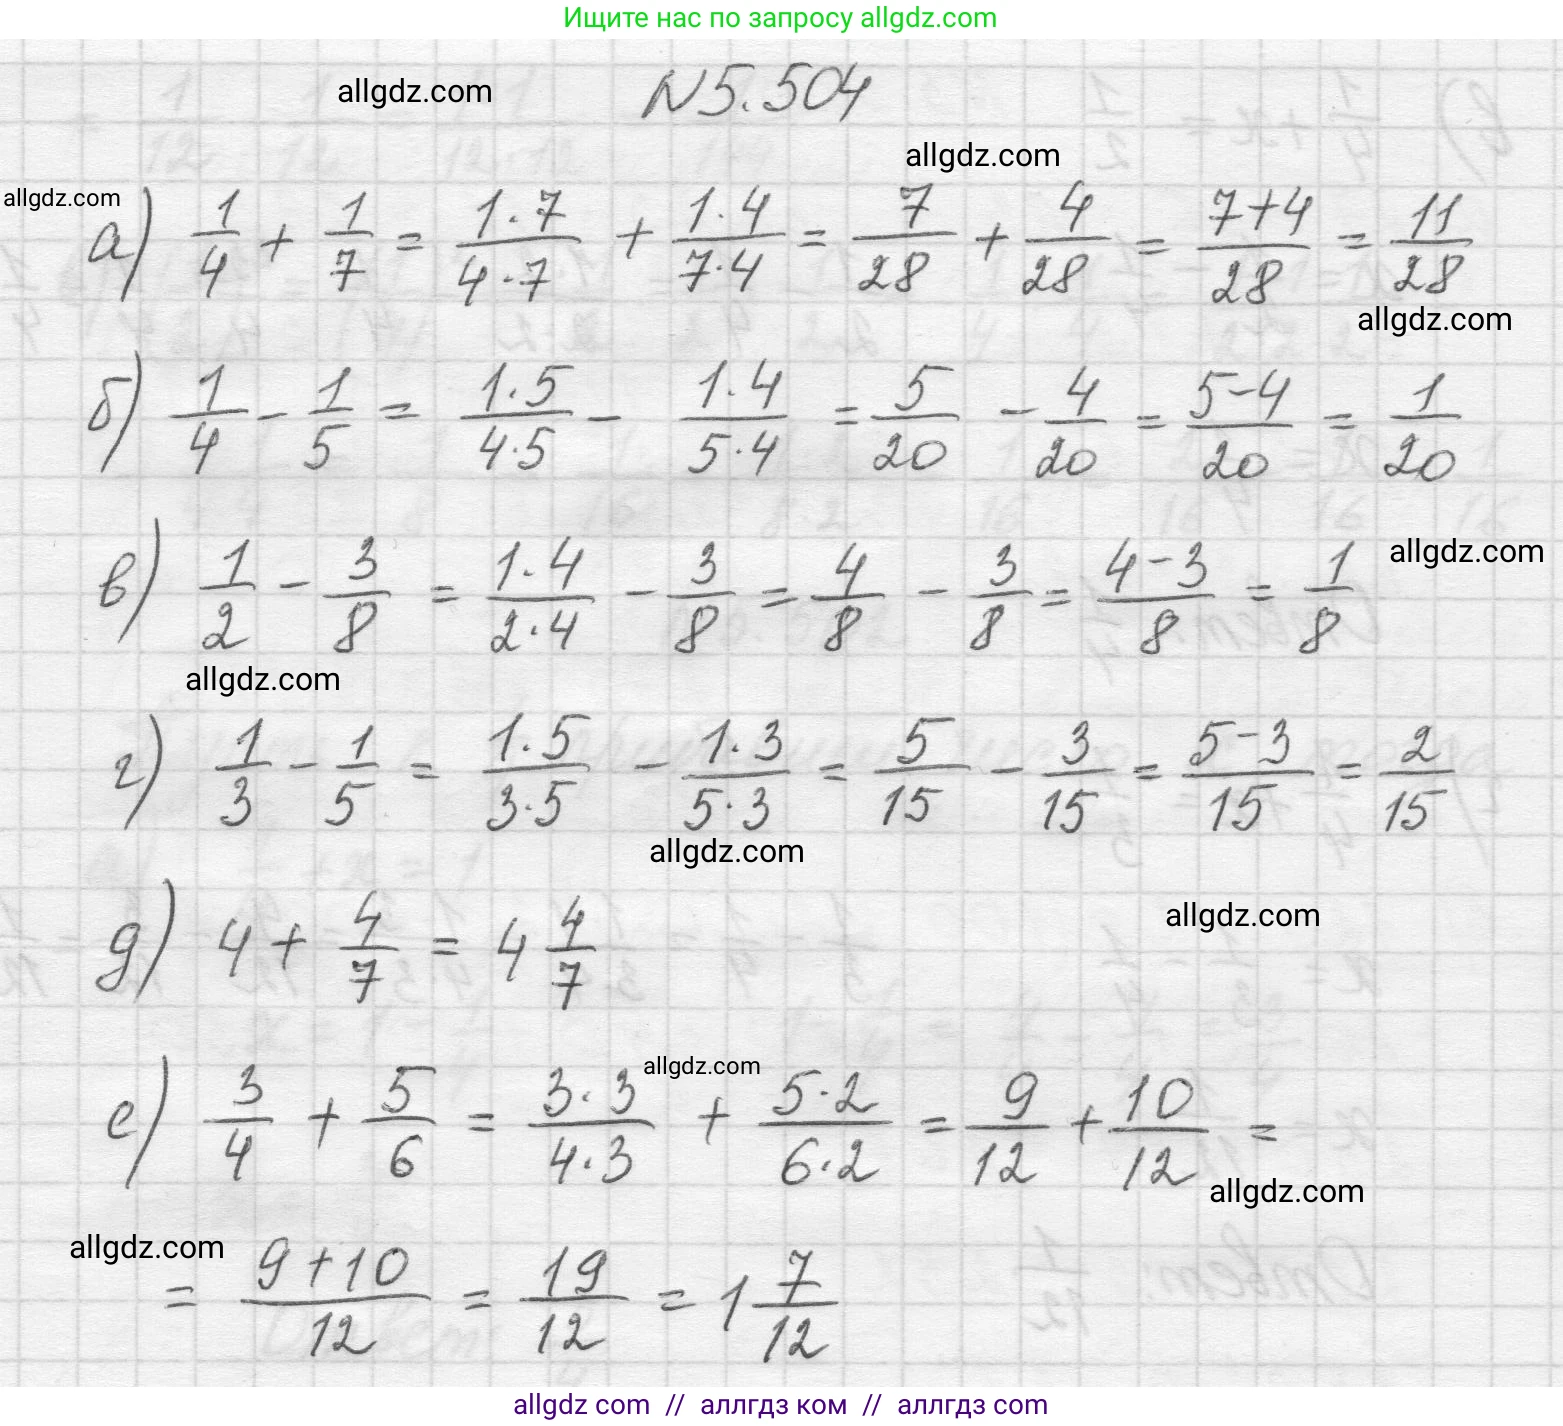 Ищите нас по запросу allgdz.com
allgdz.com
N 5.504
allgdz.com
allgdz.com
а) 1/4 + 1/7 = 1·7/4·7 + 1·4/7·4 = 7/28 + 4/28 = 7+4/28 = 11/28
allgdz.com
б) 1/4 - 1/5 = 1·5/4·5 - 1·4/5·4 = 5/20 - 4/20 = 5-4/20 = 1/20
allgdz.com
в) 1/2 - 3/8 = 1·4/2·4 - 3/8 = 4/8 - 3/8 = 4-3/8 = 1/8
allgdz.com
г) 1/3 - 1/5 = 1·5/3·5 - 1·3/5·3 = 5/15 - 3/15 = 5-3/15 = 2/15
allgdz.com
allgdz.com
д) 4 + 4/7 = 4 4/7
allgdz.com
е) 3/4 + 5/6 = 3·3/4·3 + 5·2/6·2 = 9/12 + 10/12 =
allgdz.com
allgdz.com
= 9+10/12 = 19/12 = 1 7/12
allgdz com // аллгдз ком // аллгдз com